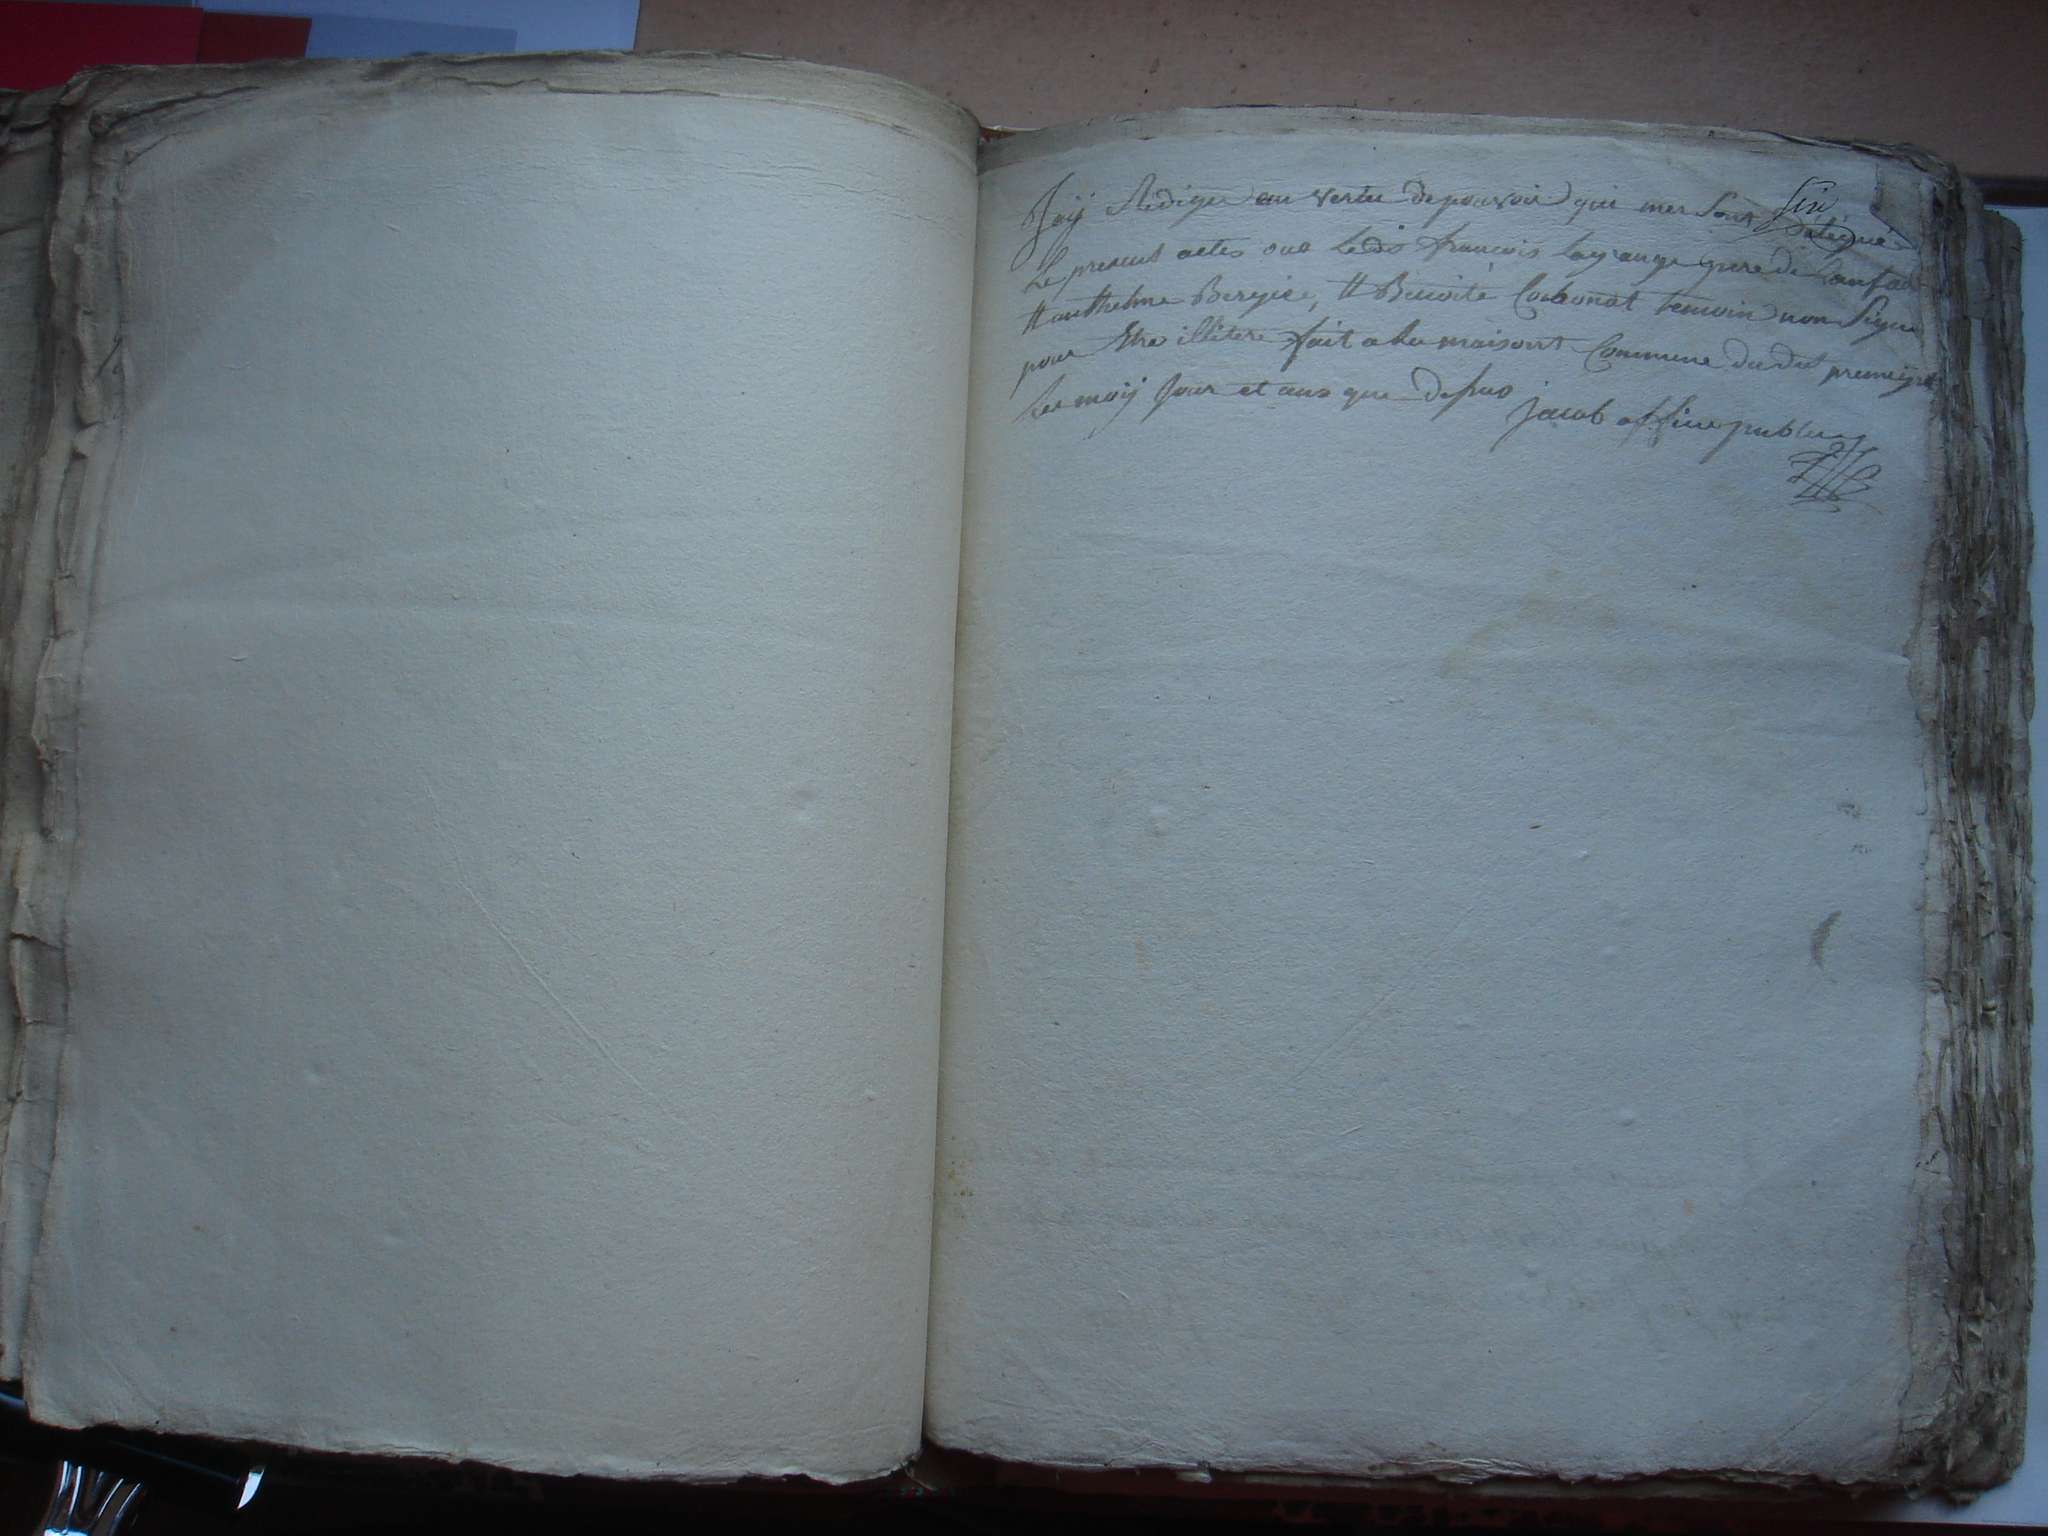 Jaij Redigee au vertu de pouvoir qui mes sont délégué
Le present actes que Ledis françois Lagrange pere de Lanfan
et anthelme Bergier, et Benoite Carbonat temoin non Signe
pour Etre illitere fait a La maisont Commune du dit premeyzel
Les moij Jour et ans que desus
jacob officie publiq